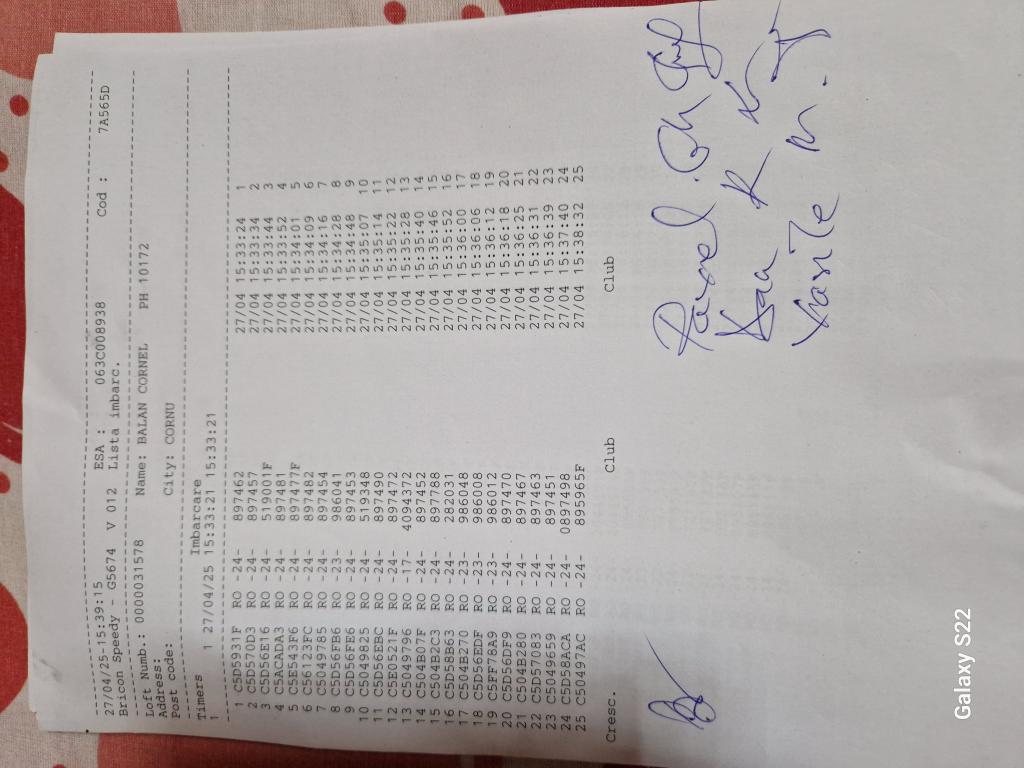 27/04/25-15:39:15 ESA : 063C008938 Cod : 7A565D
Bricon Speedy - G5674 V 012 Lista imbarc.
Loft Numb.: 0000031578 Name: BALAN CORNEL PH 10172
Address:
Post code: City: CORNU
Timers Imbarcare
1 1 27/04/25 15:33:21 15:33:21
1 C5D5931F RO -24- 897462 27/04 15:33:24 1
2 C5D570D3 RO -24- 897457 27/04 15:33:34 2
3 C5D56E16 RO -24- 519001F 27/04 15:33:44 3
4 C5ACADA3 RO -24- 897481 27/04 15:33:52 4
5 C5E543F6 RO -24- 897477F 27/04 15:34:01 5
6 C56123FC RO -24- 897482 27/04 15:34:09 6
7 C5049785 RO -24- 897454 27/04 15:34:16 7
8 C5D56FB6 RO -23- 986041 27/04 15:34:28 8
9 C5D56FE6 RO -24- 897453 27/04 15:34:48 9
10 C5049825 RO -24- 519348 27/04 15:35:07 10
11 C5D56EBC RO -24- 897490 27/04 15:35:14 11
12 C5E5521F RO -24- 897492 27/04 15:35:22 12
13 C5049796 RO -17- 4094372 27/04 15:35:28 13
14 C504B07F RO -24- 897452 27/04 15:35:40 14
15 C504B2C3 RO -24- 897788 27/04 15:35:46 15
16 C5D58B63 RO -24- 282031 27/04 15:35:52 16
17 C504B270 RO -23- 986048 27/04 15:36:00 17
18 C5D56EDF RO -23- 986008 27/04 15:36:06 18
19 C5FF78A9 RO -23- 986012 27/04 15:36:12 19
20 C5D56DF9 RO -24- 897470 27/04 15:36:18 20
21 C504B280 RO -24- 897467 27/04 15:36:25 21
22 C5D57083 RO -24- 897463 27/04 15:36:31 22
23 C5049659 RO -24- 897451 27/04 15:36:39 23
24 C5D58ACA RO -24- 0897498 27/04 15:37:40 24
25 C50497AC RO -24- 895965F 27/04 15:38:32 25
Cresc. Club Club
Pavel
Vasile M.
Galaxy S22